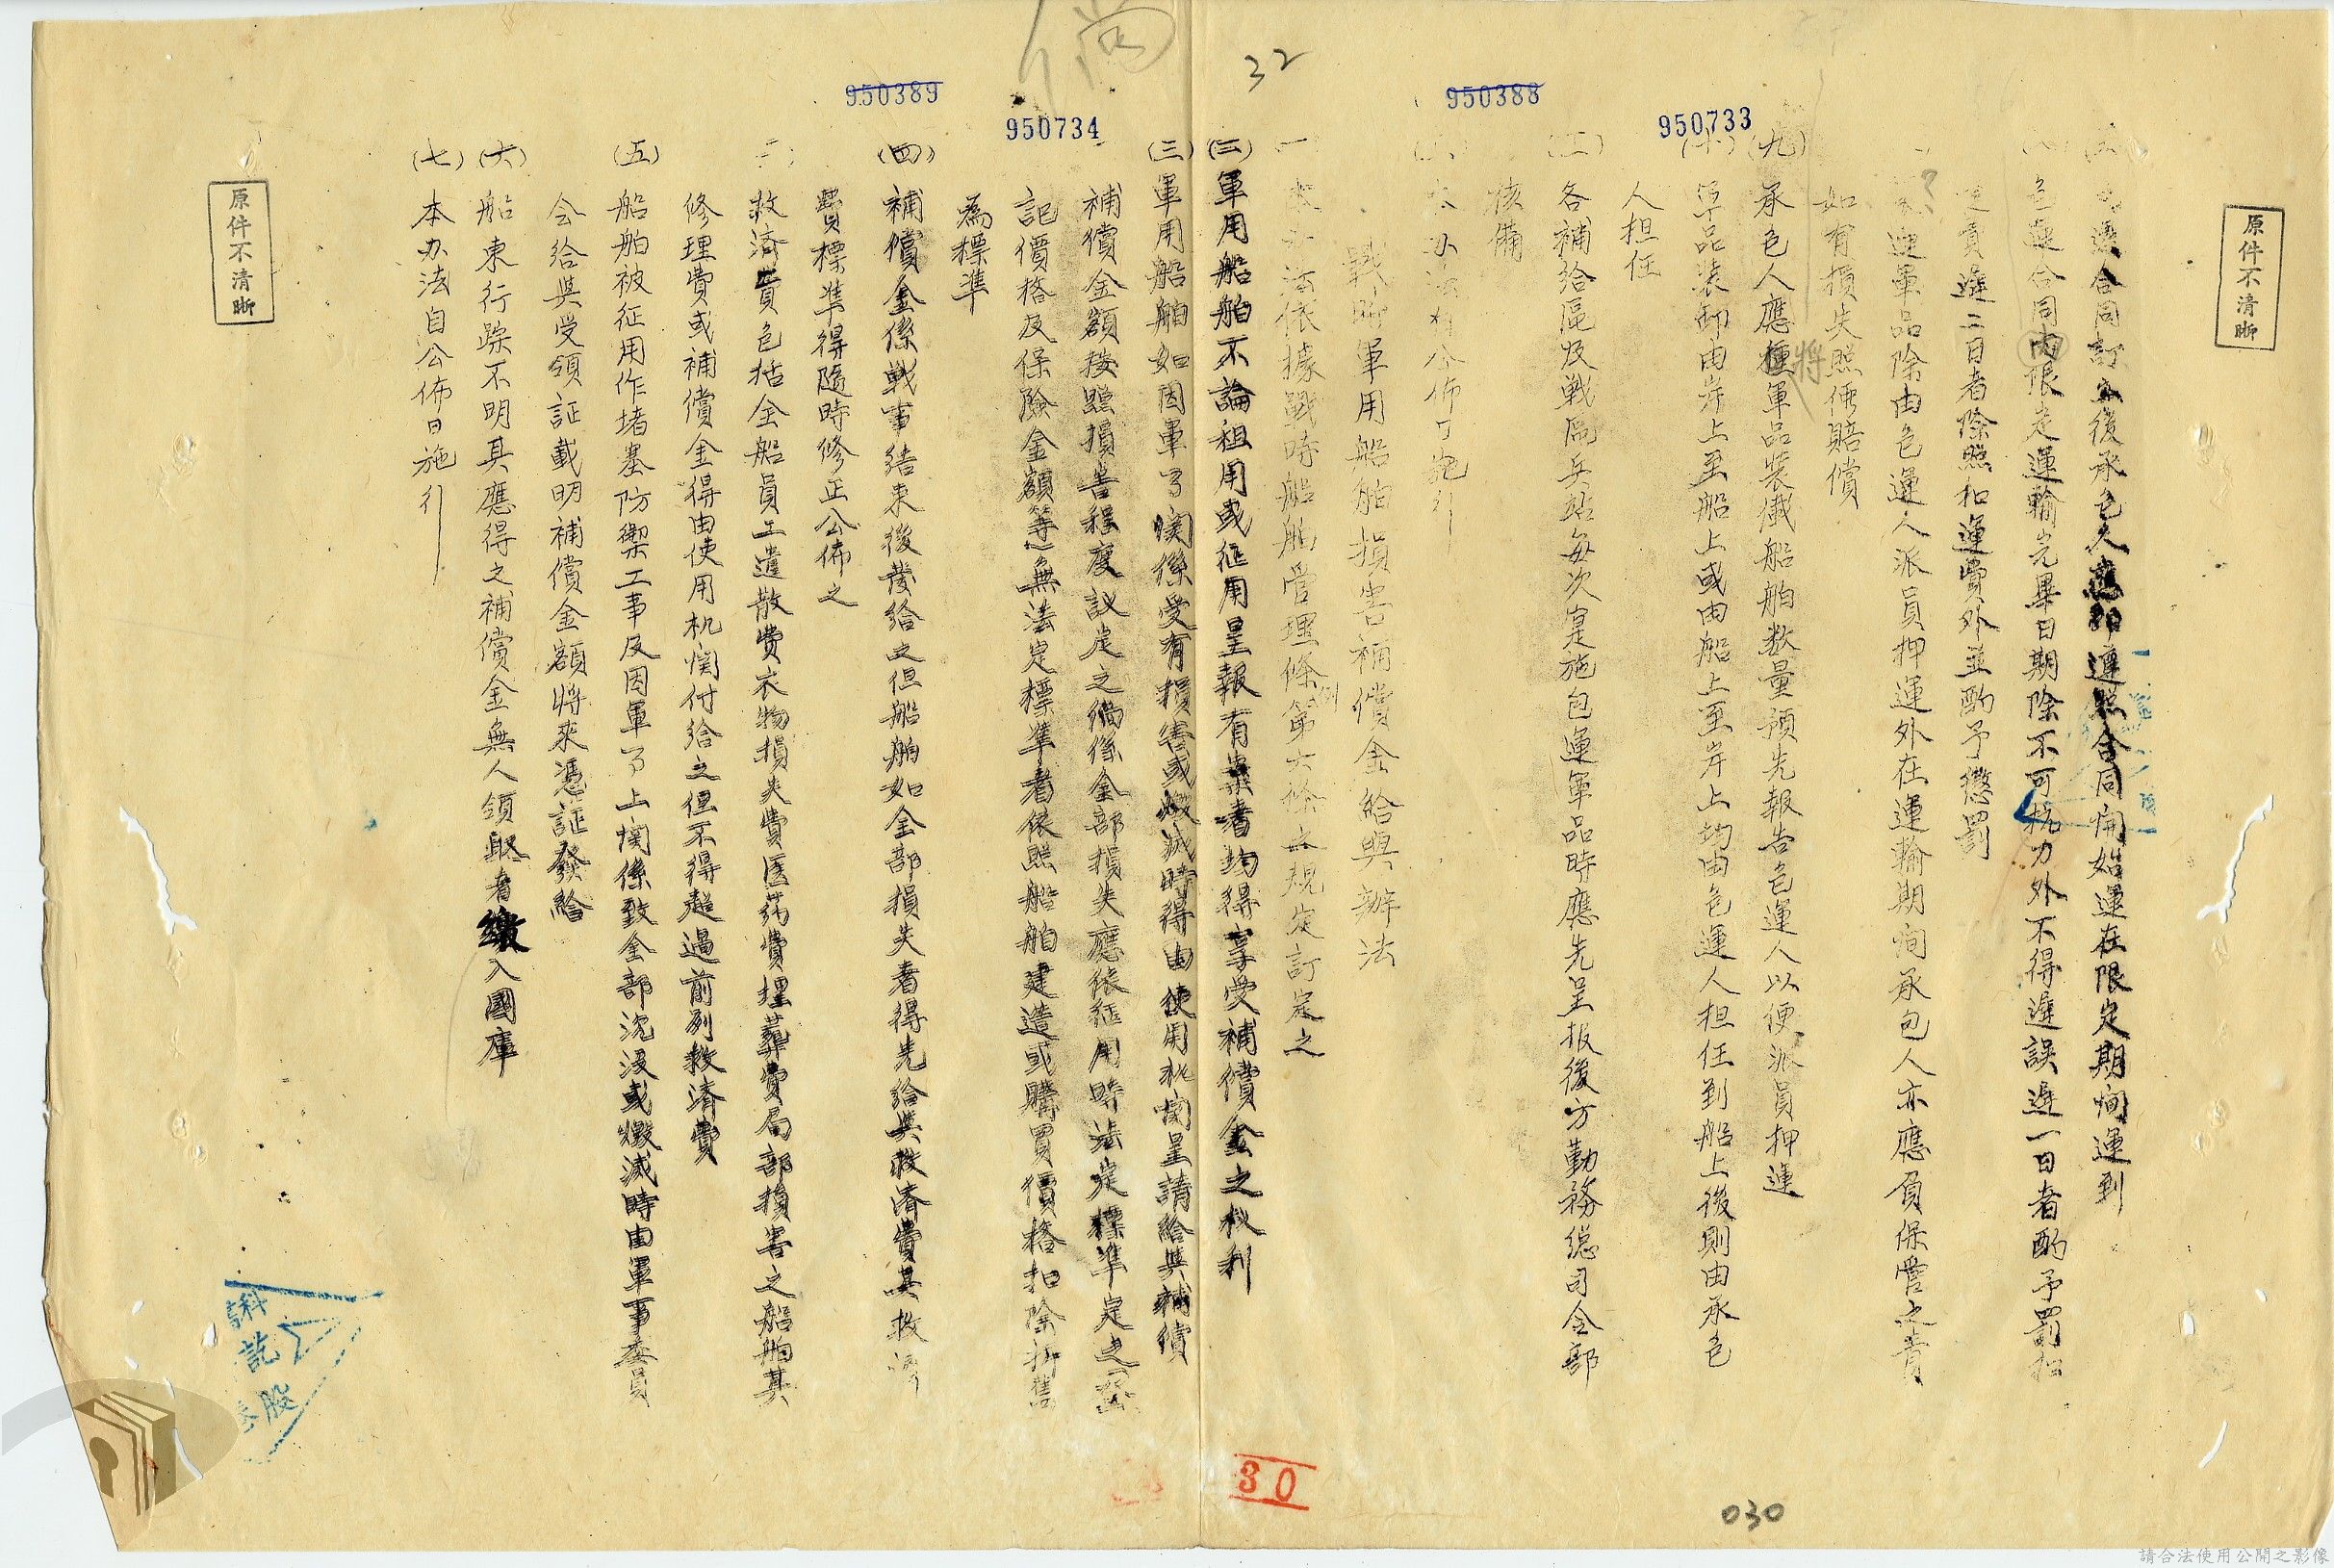 32
950388
950733
950389
950734
原件不清晰
運合同訂立後承包人應即遵照合同開始運在限定期間運到
包運合同內限定運輸完畢日期除不可抗力外不得遲誤遲一日者酌予罰扣
運費遲二日者除照扣運費外並酌予懲罰
運軍品除由包運人派員押運外在運輸期間承包人亦應負保管之責
如有損失照価賠償
(九)承包人應將種軍品裝儎船舶数量預先報告包運人以便派員押運
(十)軍品裝卸由岸上至船上或由船上至岸上均由包運人担任到船上後則由承包
人担任
各補給區及戰區兵站每次實施包運軍品時應先呈报後方勤務總司令部
核備
本办法自公佈日施行
戰時軍用船舶損害補償金給與辦法
一 本办法依據戰時船舶管理條例第六條之規定訂定之
(二)軍用船舶不論租用或征用呈報有案者均得享受補償金之权利
(三)軍用船舶如因軍事関係受有損害或燬滅時得由使用机関呈請給與補償
補償金額按照損害程度議定之倘係全部損失應依征用時法定標準定之
記價格及保險金額等)無法定標準者依照船舶建造或購買價格扣除折舊
為標準
(四)補償金係戰事結束後發給之但船舶如全部損失者得先給與救濟費其救濟
費標準得隨時修正公佈之
救濟費包括全船員工遣散費衣物損失費医药費埋葬費局部損害之船舶其
修理費或補償金得由使用机関付給之但不得超過前列救濟費
(五)船舶被征用作堵塞防禦工事及因軍事上関係致全部沈没或燬滅時由軍事委員
会給與受領証載明補償金額將來憑証發給
(六)船東行踪不明其應得之補償金無人領取者繳入國庫
(七)本办法自公佈日施行
原件不清晰
股
30
030
請合法使用公開之影像